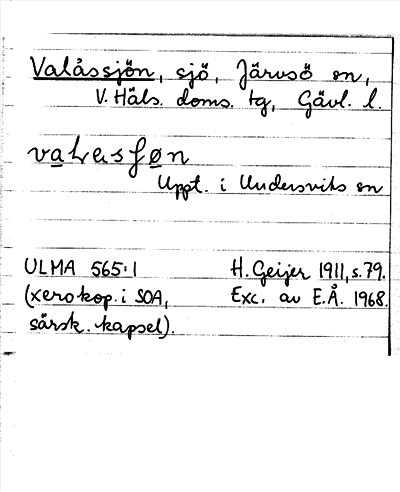 Valåssjön, sjö, Järvsö sn,
V. Häls. doms. tg, Gävl. l.
Uppt. i Undersviks sn
ULMA 565:1 H. Geijer 1911, s. 79.
(xerokop. i SOA, Exc. av E.Å. 1968.
särsk. kapsel).